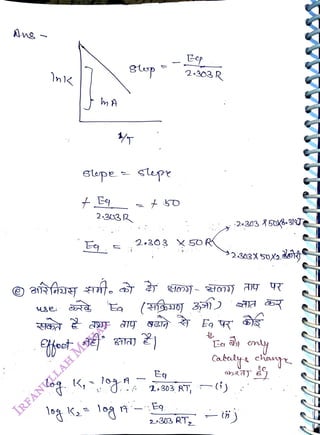 Ans -
lnK
lnA
1/T
slop = - Ea / 2.303R
slope = slope
+ Ea / 2.303R = + 50
Ea = 2.303 × 50R
2.303 × 50 × 8.314 J
2.303 × 50 × 2
आरेनियस समी. को दो अलग-अलग ताप पर
use करके Ea (सक्रियण ऊर्जा) ज्ञात कर
सकते है तथा ताप बढाने से Ea पर कोई
Effect नहीं आता है।
Ea को only
Catalys change
करता है
log K₁ = log A - Ea / 2.303RT₁ —(i)
log K₂ = log A - Ea / 2.303RT₂ —(ii)